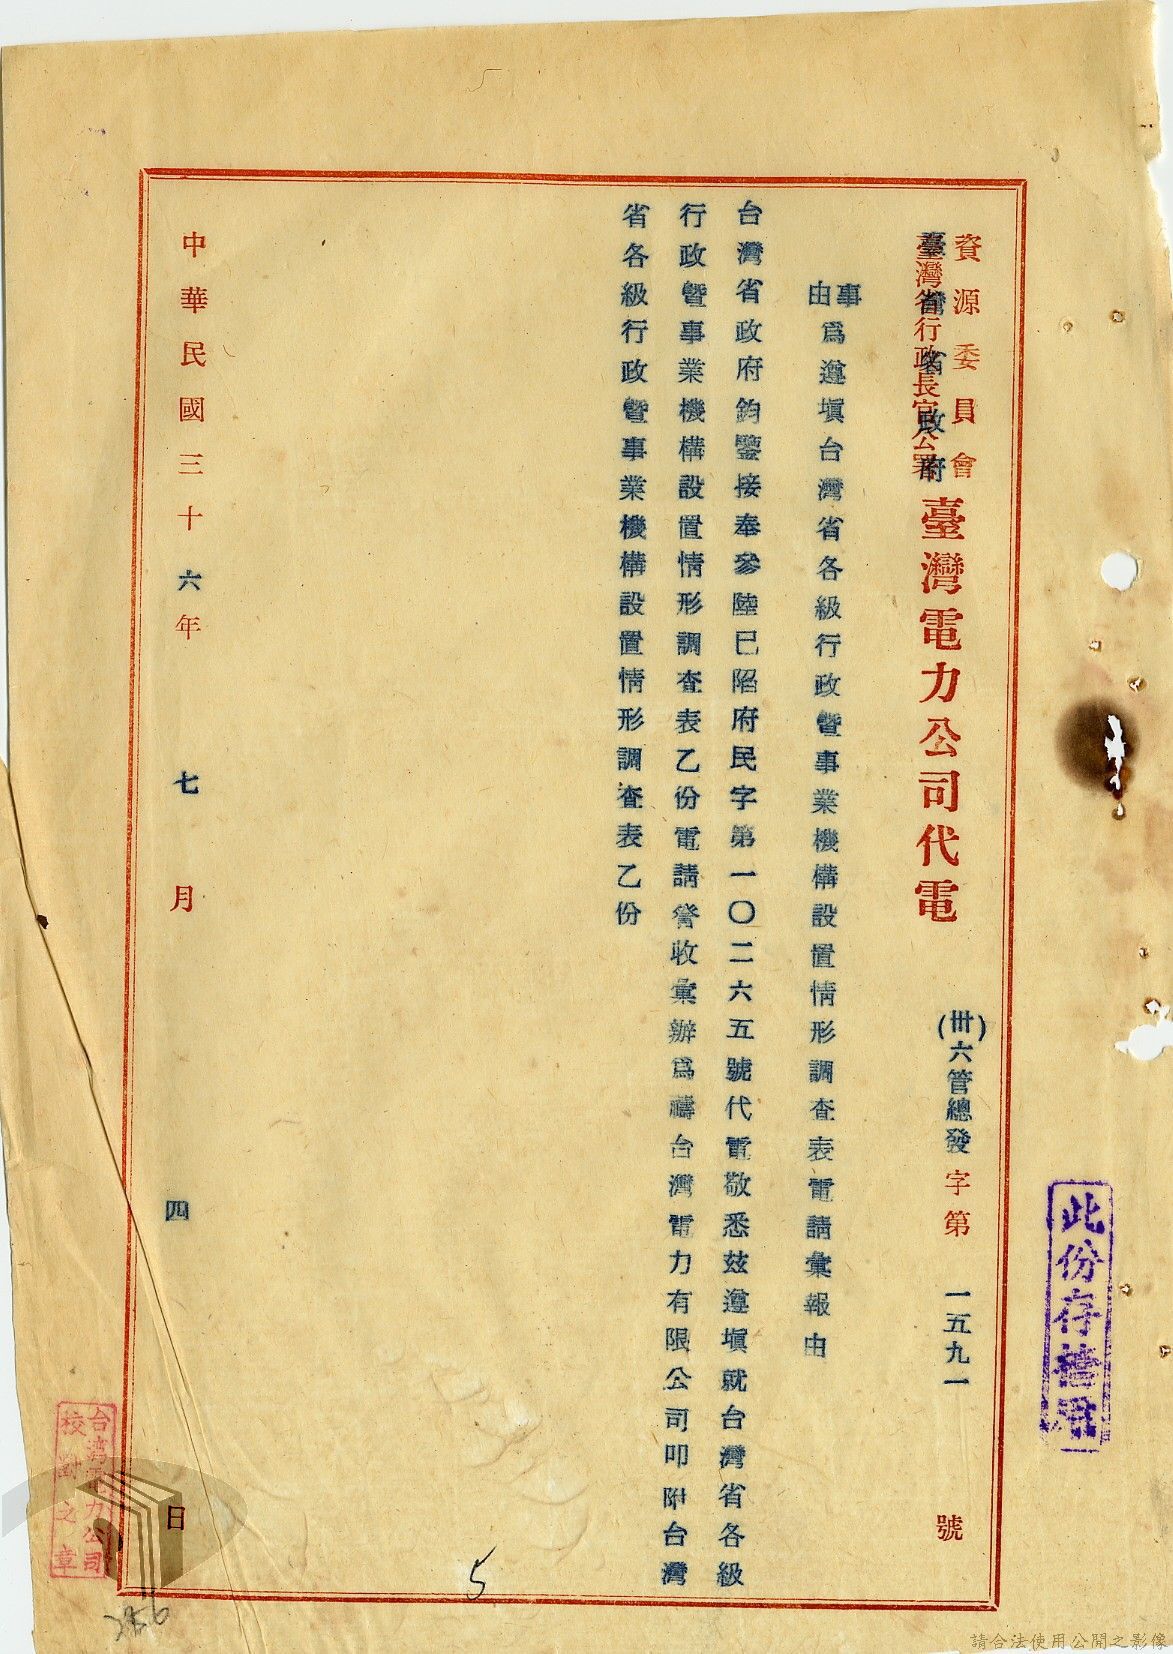 資源委員會
臺灣省行政長官公署
臺灣省政府
臺灣電力公司代電
(卅)六管總發字第一五九一號
事由
為遵塡台灣省各級行政暨事業機構設置情形調查表電請彙報由
台灣省政府鈞鑒接奉參陸巳陷府民字第一〇二六五號代電敬悉玆遵塡就台灣省各級
行政暨事業機構設置情形調查表乙份電請詧收彙辦爲禱台灣電力有限公司叩附台灣
省各級行政暨事業機構設置情形調查表乙份
中華民國三十六年七月四日
此份存檔用
台灣電力公司
校對之章
5
256
請合法使用公開之影像